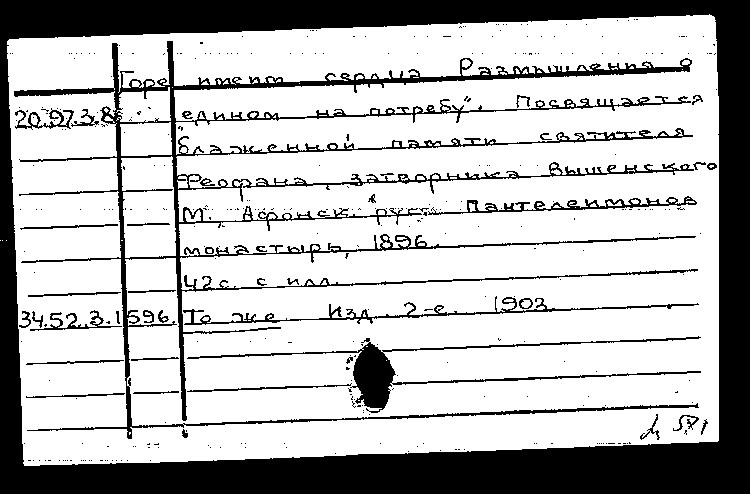 Горе имеем сердца Размышления о
20.97.3.8 едином на потребу". Посвящается
блаженной памяти святителя
Феофана, затворника Вышенского
М., Афонск. русск. Пантелеимонов
монастырь, 1896.
42 с. с илл.
34.52.3.1596. То же Изд. 2-е. 1903